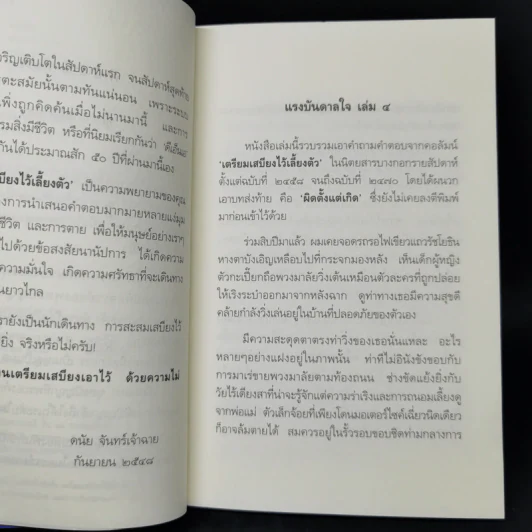 จริญเติบโตในสัปดาห์แรก จนสัปดาห์สุดท้าย
ตะสมัยนั้นตามทันแน่นอน เพราะระบบ
เพิ่งถูกคิดค้นเมื่อไม่นานมานี้ และการ
รมสิ่งมีชีวิต หรือที่นิยมเรียกกันว่า ดีเอ็นเอ
กันได้ประมาณสัก ๕๐ ปีที่ผ่านมานี้เอง
บียงไว้เลี้ยงตัว’ เป็นความพยายามของคุณ
องการนำเสนอคำตอบมากมายหลายแง่มุม
ชีวิต และการตาย เพื่อให้มนุษย์อย่างเราๆ
ไปด้วยข้อสงสัยนานัปการ ได้เกิดความ
ความมั่นใจ เกิดความศรัทธาที่จะเดินทาง
นยาวไกล
รายังเป็นนักเดินทาง การสะสมเสบียงไว้
ยิ่ง จริงหรือไม่ครับ!
นเตรียมเสบียงเอาไว้ ด้วยความไม่
ดนัย จันทร์เจ้าฉาย
กันยายน ๒๕๔๘
แรงบันดาลใจ เล่ม ๔
หนังสือเล่มนี้รวบรวมเอาคำถามคำตอบจากคอลัมน์
‘เตรียมเสบียงไว้เลี้ยงตัว’ ในนิตยสารบางกอกรายสัปดาห์
ตั้งแต่ฉบับที่ ๒๔๕๘ จนถึงฉบับที่ ๒๔๗๐ โดยได้ผนวก
เอาบทส่งท้าย คือ ‘ผิดตั้งแต่เกิด’ ซึ่งยังไม่เคยลงตีพิมพ์
มาก่อนเข้าไว้ด้วย
ร่วมสิบปีมาแล้ว ผมเคยจอดรถรอไฟเขียวแถวรัชโยธิน
หางตาบังเอิญเหลือบไปที่กระจกมองหลัง เห็นเด็กผู้หญิง
ตัวกะเปี๊ยกถือพวงมาลัยวิ่งเต้นเหมือนตัวละครที่ถูกปล่อย
ให้เริงระบำออกมาจากหลังฉาก ดูท่าทางเธอมีความสุขดี
คล้ายกำลังวิ่งเล่นอยู่ในบ้านที่ปลอดภัยของตัวเอง
มีความสะดุดตาตรงท่าวิ่งของเธอนั่นแหละ อะไร
หลายๆอย่างแฝงอยู่ในภาพนั้น ท่าทีไม่อินังขังขอบกับ
การมาเร่ขายพวงมาลัยตามท้องถนน ช่างขัดแย้งยิ่งกับ
วัยไร้เดียงสาที่น่าจะรู้จักแต่ความร่าเริงและการถนอมเลี้ยงดู
จากพ่อแม่ ตัวเล็กจ้อยที่เพียงโดนมอเตอร์ไซค์เฉี่ยวนิดเดียว
ก็อาจล้มตายได้ สมควรอยู่ในรั้วรอบขอบชิดท่ามกลางการ